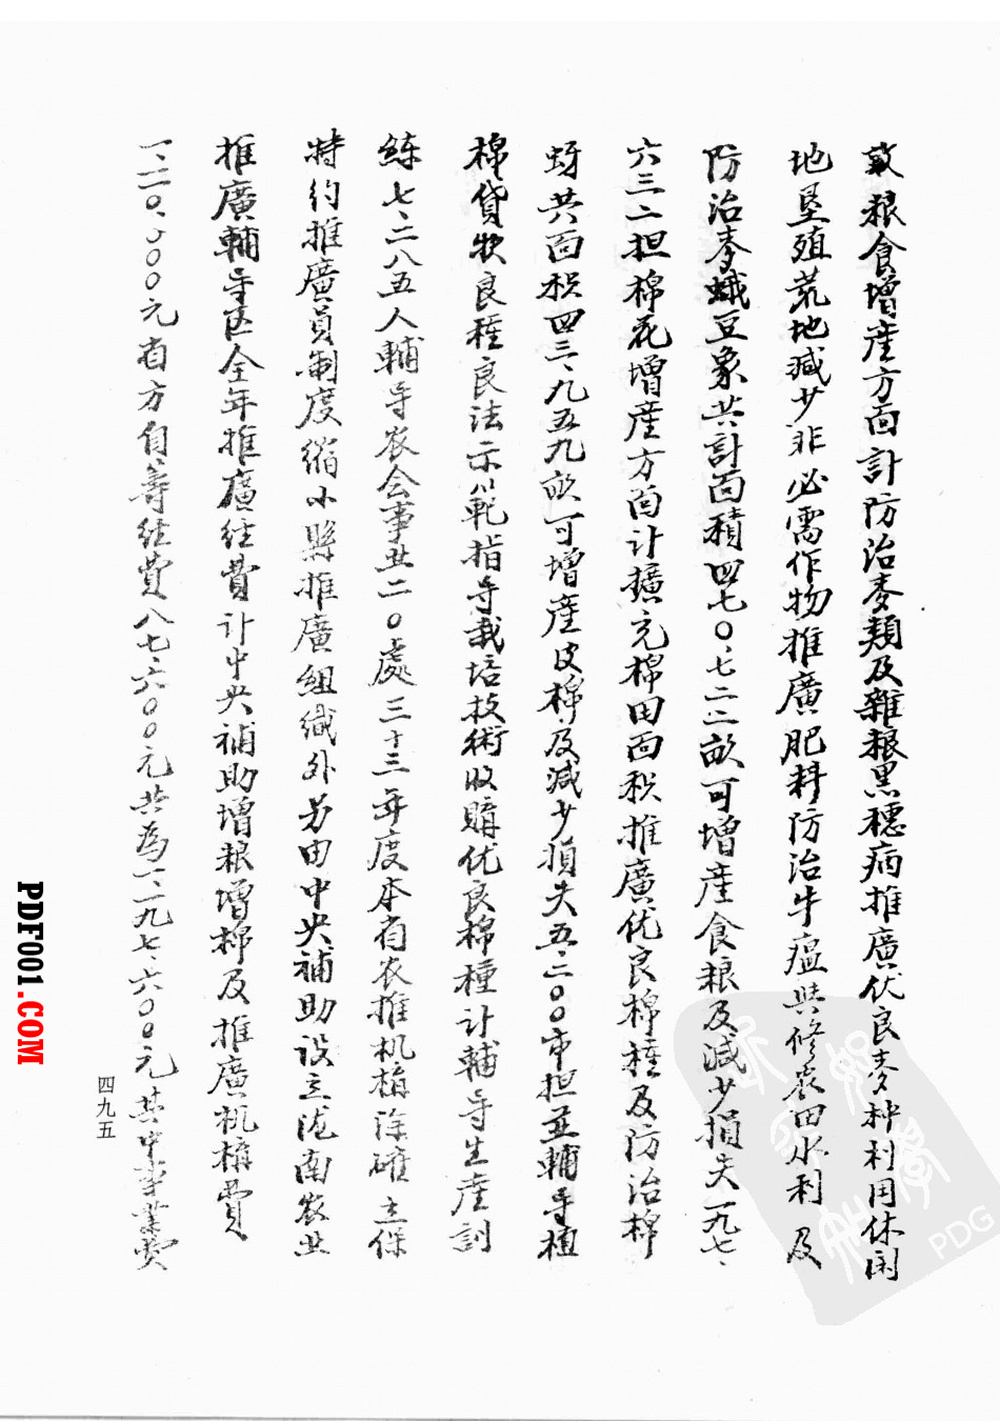 致粮食增産方面計防治麥類及雜粮黑穗病推廣优良麥种利用休闲
地垦殖荒地减少非必需作物推廣肥料防治牛瘟共修农田水利及
防治麥蛾豆象共計面積四七〇、七二二畝可增産食粮及减少損失一九七、
六三二担棉花增産方面计擴充棉田面积推廣优良棉種及防治棉
蚜共面积四三、九五九畝可增産皮棉及减少損失五、二〇〇市担並輔导植
棉貸款良種良法示範指导栽培技術收購优良棉種计輔导生産訓
練七、二八五人輔导农会事业二〇處三十三年度本省农推机構除確立保
特约推廣員制度縮小縣推廣组織外另由中央補助设立陇南农业
推廣輔导区全年推廣经費计中央補助增粮增棉及推廣机構費
一、二一〇、〇〇〇元省方自籌经費八七、六〇〇元共為一、二九七、六〇〇元其中事業费
四九五
PDF001.COM
PDG